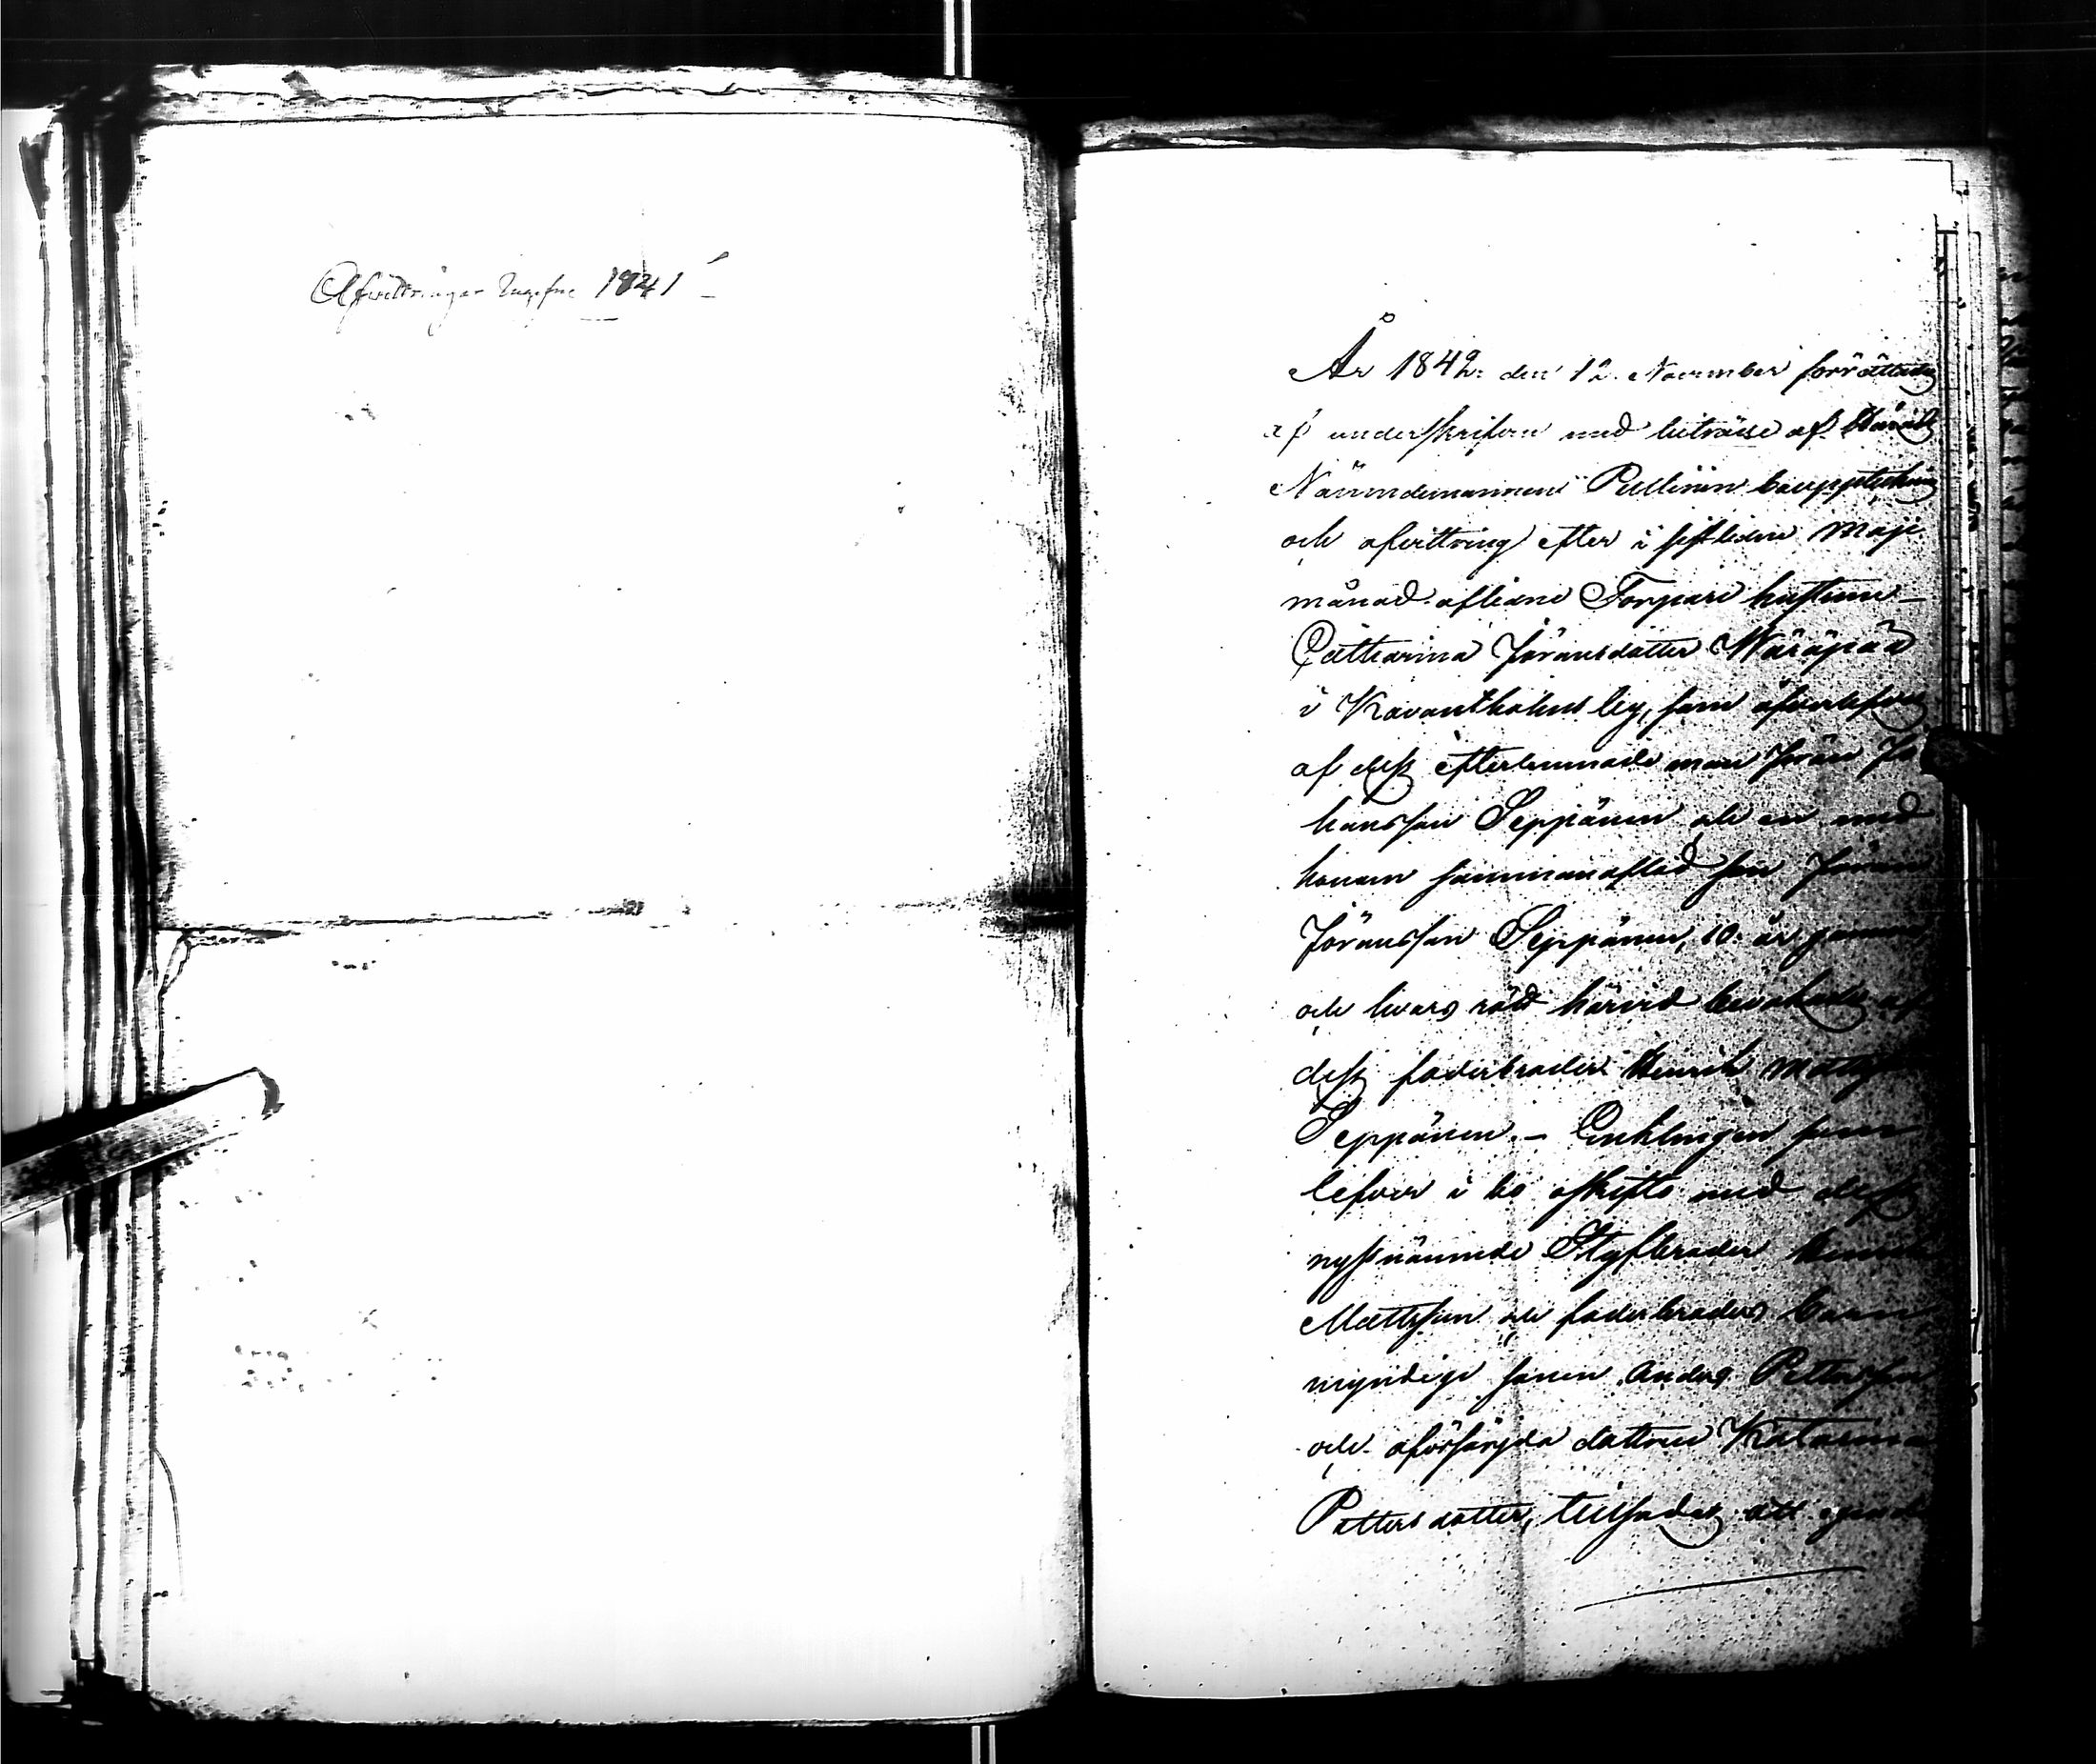 Afvittringar Ingifne 1841
År 1842 den 12 November förrättades
af underskrifven med biträde af Härads
Nämndemannen Pullinen bouppteckning
och afvittring efter i sistledne Maji
månad aflidne Torpare hustrun
Catharina Jöransdotter Wäräpää
i Kavantholms by, som öfverlefves
af dess efterlemnade man Jöran Jo
hansson Seppänen och en med
honom sammanaflad son Jöran
Jöransson Seppänen, 10 år gammal,
och hvars rätt härvid bevakades af
dess faderbroder Henrik Matts
Seppänen. – Enklingen som
lefver i bo oskifto med dess
nyssnämnde Styfbroder Henrik
Mattsson och faderbroders barn
myndige sonen Anders Pettersson
och oförsörgda dottren Katarina
Pettersdotter, tillsades att egende